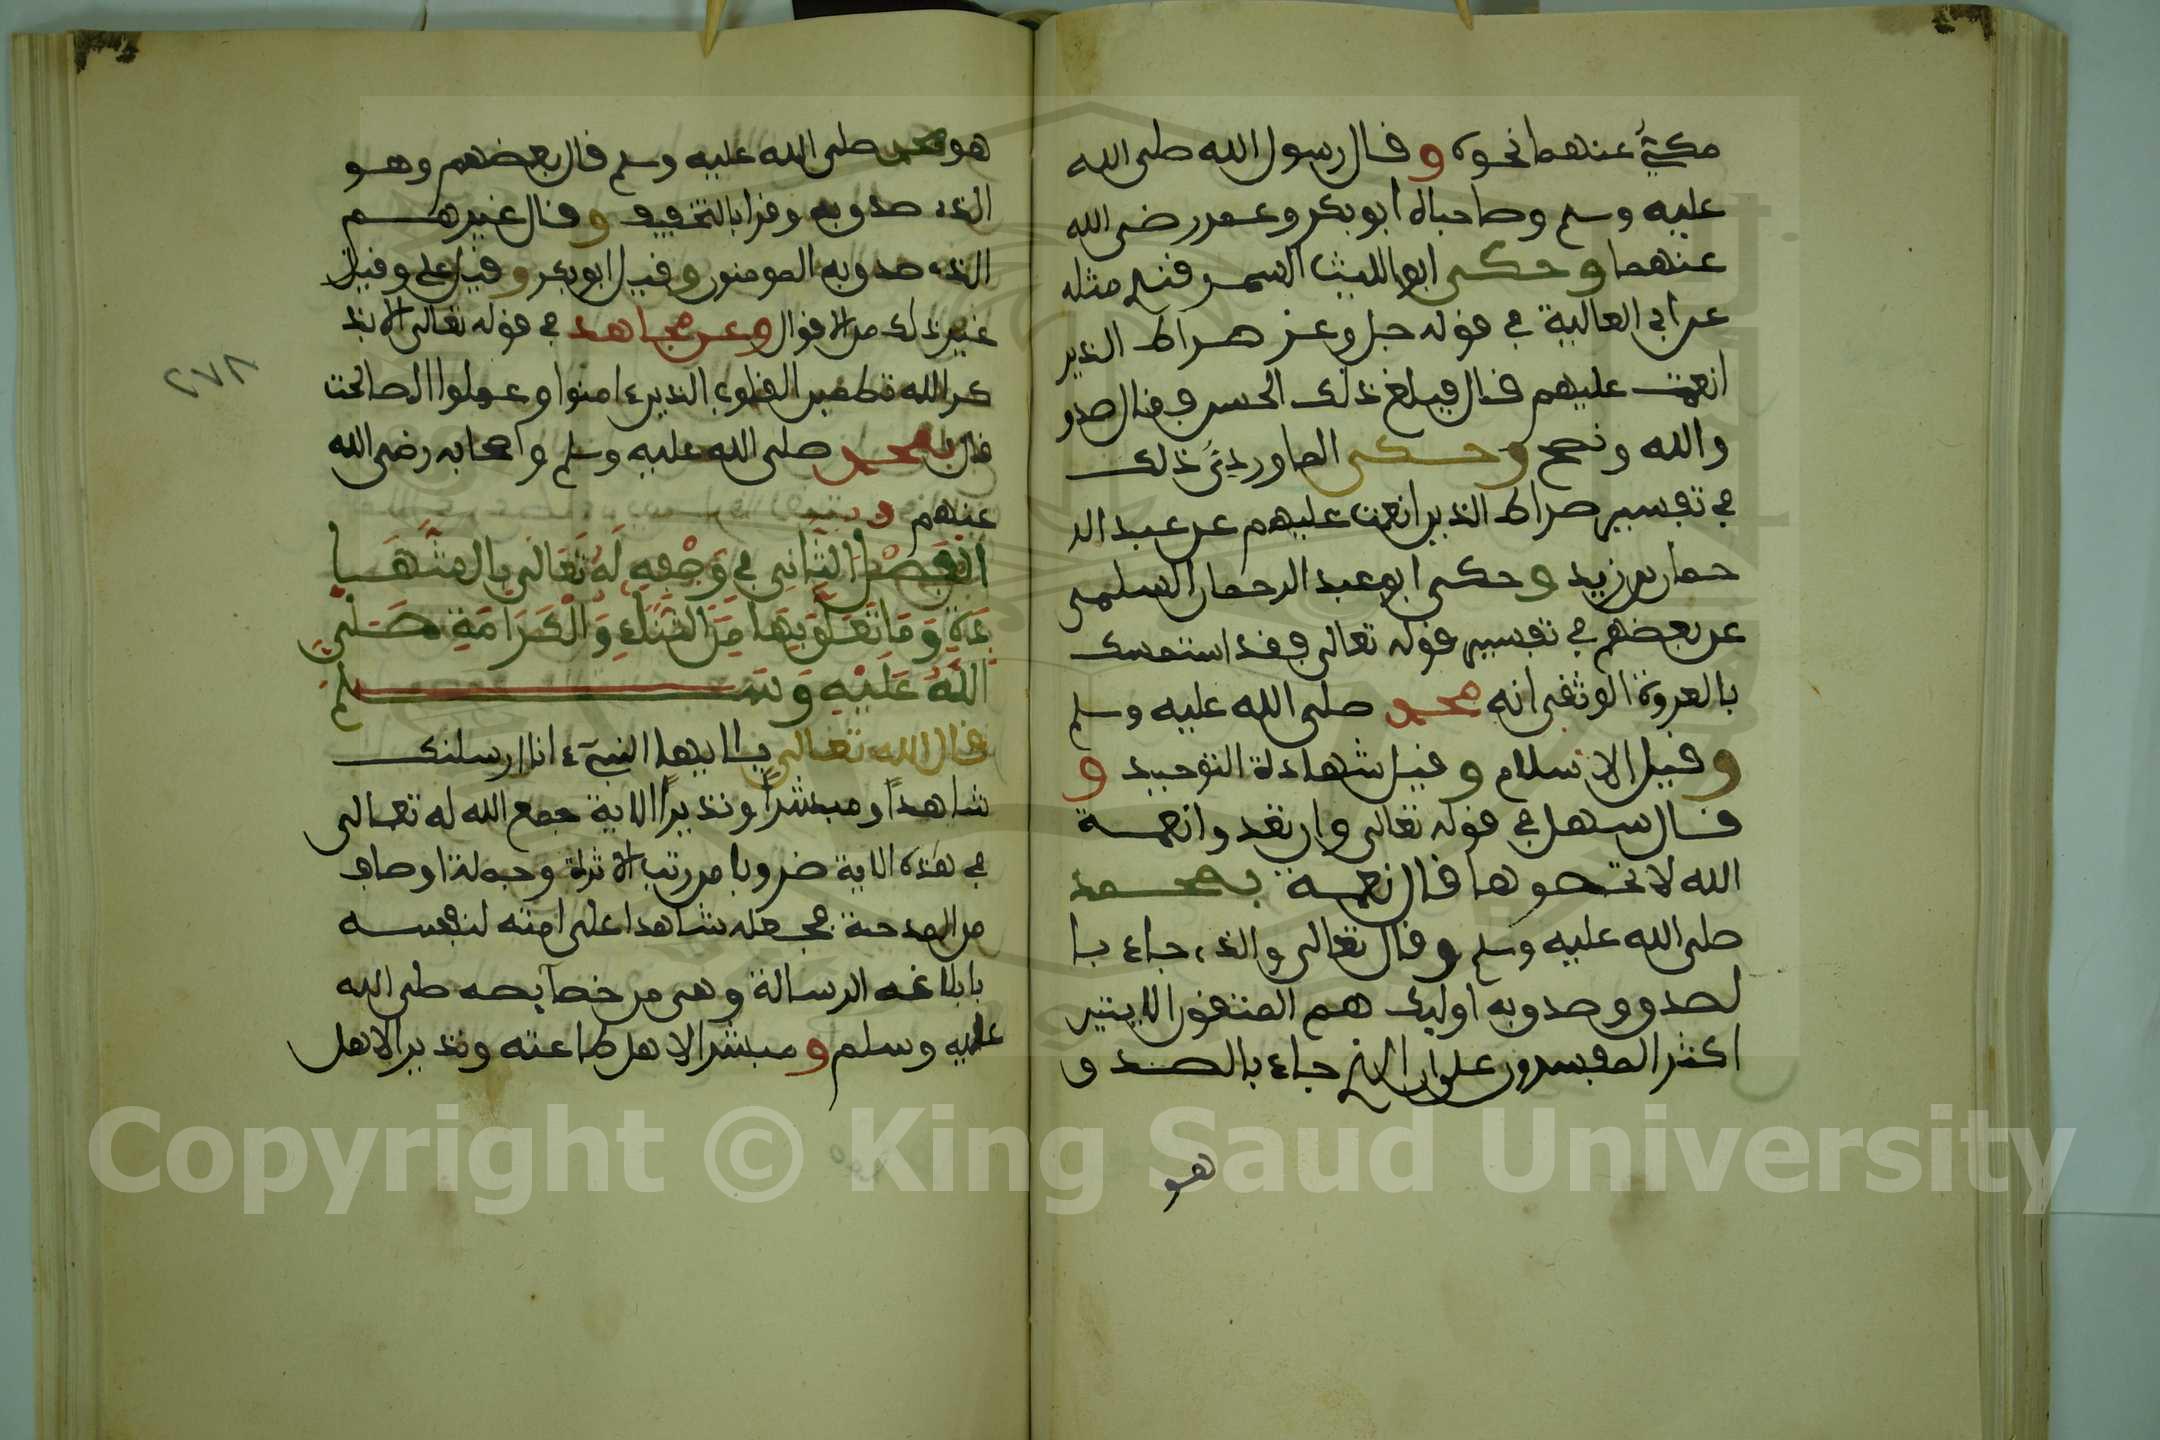 مكيٌّ عنهما نحوه وقال رسول الله صلى الله
عليه وسلم وصاحباه ابو بكر وعمر رضى الله
عنهما وحكى ابو الليث السمرقندي مثله
عن ابى العالية في قوله جل وعز صراط الذين
انعمت عليهم قال فبلغ ذلك الحسن فقال صدق
والله ونصح وحكى الماوردىُّ ذلك
في تفسير صراط الذين انعمت عليهم عن عبد الر
حمان بن زيد وحكى ابو عبد الرحمان السلمى
عن بعضهم في تفسير قوله تعالى فقد استمسك
بالعروة الوثقى انه محمد صلى الله عليه وسلم
وقيل الاسلام وقيل شهادة التوحيد و
قال سهل في قوله تعالى وان تعدوا نعمة
الله لا تحصوها قال نعمة بمحمد
صلى الله عليه وسلم وقال تعالى والذي جاء با
لصدق وصدق به اوليك هم المتقون الايتين
اكثر المفسرون على ان الذي جاء بالصدق
هو
هو محمد صلى الله عليه وسلم قال بعضهم وهو
الذي صدق به وقرا بالتخفيف وقال غيرهم
الذي صدق به المومنون وقيل ابو بكر وقيل على وقيل
غير ذلك من الاقوال وعن مجاهد في قوله تعالى الا بذ
كر الله تطمين القلوب الذين ءامنوا وعملوا الصالحت
قال بمحمد صلى الله عليه وسلم واصحابه رضى الله
عنهم
٢٧٨
الْفَصْلُ الثَّانِى فِي وَصْفِهِ لَهُ تَعَالَى بِالشَّهَا
دَةِ وَمَا تَعَلَّقَ بِهَا مِنَ الثَّنَاءِ وَالْكَرَامَةِ صَلَّى
اللَّهُ عَلَيْهِ وَسَلَّمَ
قال الله تعالى يا ايها النبىء انا ارسلنك
شاهدًا ومبشرًا ونذيرًا الاية جمع الله له تعالى
في هذه الاية ضروبا من رتب الاثرة وجملة اوصاف
من المدحة فجعله شاهدا على امته لنفسه
بابلاغه الرسالة وهى من خصآيصه صلى الله
عليه وسلم ومبشرا لاهل طاعته ونذيرا لاهل
Copyright © King Saud University